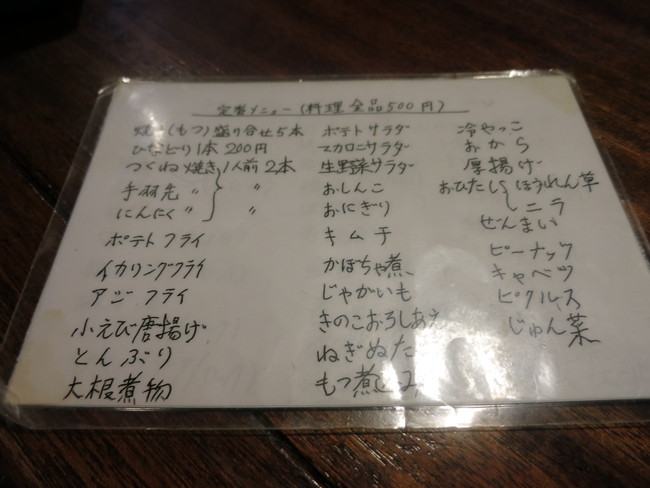 定番メニュー(料理 全品500円)
焼(もつ)盛り合せ5本
ひなどり1本200円
つくね焼き 1人前 2本
手羽先 〃 〃
にんにく 〃 〃
ポテトフライ
イカリングフライ
アジフライ
小えび唐揚げ
とんぶり
大根煮物
ポテトサラダ
マカロニサラダ
生野菜サラダ
おしんこ
おにぎり
キムチ
かぼちゃ煮
じゃがいも
きのこおろしあえ
ねぎぬた
もつ煮込み
冷やっこ
おから
厚揚げ
おひたし ほうれん草
ニラ
ぜんまい
ピーナッツ
キャベツ
ピクルス
じゅん菜